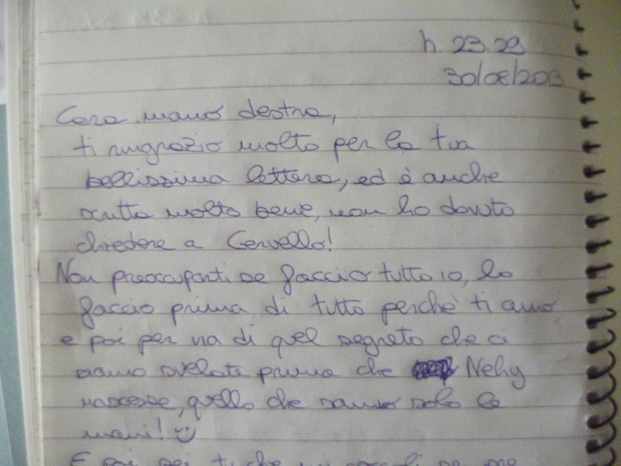 h 23.29
30/08/2013
Cara mano destra,
ti ringrazio molto per la tua
bellissima lettera, ed è anche
scritta molto bene, non ho dovuto
chiedere a Cervello!
Non preoccuparti se faccio tutto io, lo
faccio prima di tutto perchè ti amo,
e poi per via di quel segreto che ci
siamo svelate prima che Nehy
nascesse, quello che sanno solo le
mani! :)
E poi sei tu che